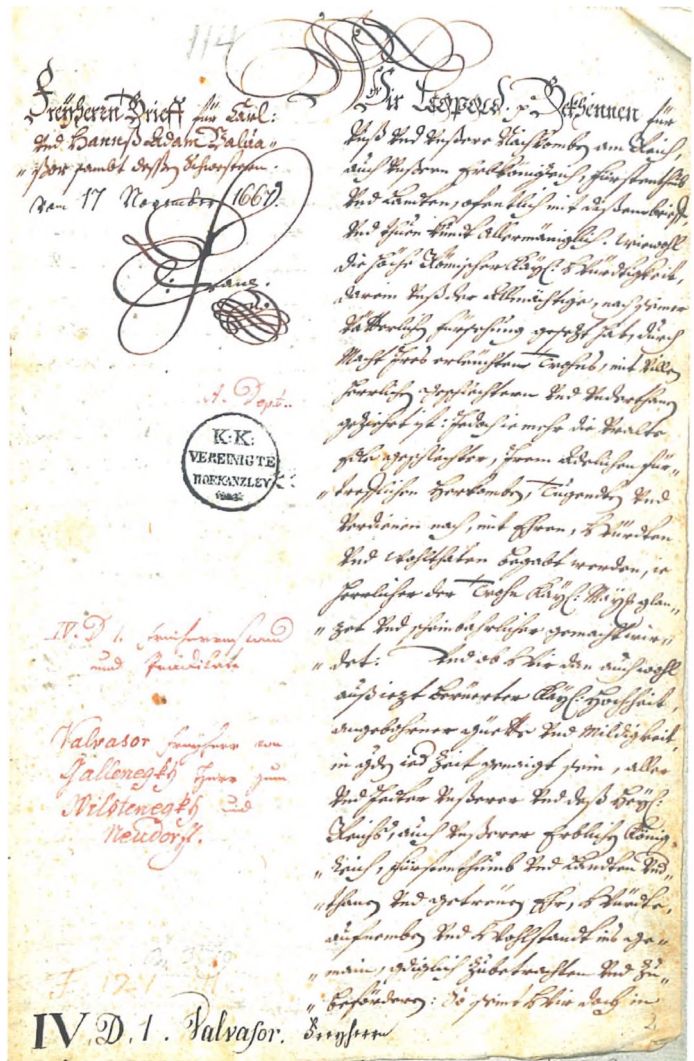 114
Freyherrn Brieff für Carl:
Vnd Hannß Adam Valua„
„ßor sambt dessen Schwestern.
vom 17 November 1667.
A. Dept.
K:K:
VEREINIGTE
HOFKANZLEY
IV. D. 1. Freiherrnstand
und Praedikate
Valvasor Freyherr von
Gallenegkh Herr zum
Neudorff.
Wir Leopold. p. Bekhennen für
Vnß Vnd Vnßere Nachkomben am Reich,
auch Vnßern Erbkönigreich, Fürstenthumb
Vnd Landen, offentlich mit dißem brieff,
Vnd thuen kundt allermäniglich. Wiewohl
die höche Römischer Kayl: Würdtigkeit,
darein Vnß der Allmächtige, nach seiner
Vätterlichen Fürsehung gesezt hat, durch
Macht Ires erleuchten Trohns, mit Villen
herrlichen geschlechtern Vnd Vnderthanen
geziehrt ist: Jedoch ie mehr die Vralte
Edle geschlechter, Irem Adelichen für„
„trefflichen herkomben, Tugenden Vnd
Verdienen nach, mit Ehren, Würdten
Vnd Wohlthaten begabt werden, ie
herrlicher der Trohn Kayl: Mayst: glan„
„zet Vnd scheinbahrlicher gemacht wir„
„det: Vnd ob Wir dan auch wohl
auß iezt berüerter Kayl: Hochheit,
angebohrner güette Vnd Mildigkeit
zeit genaigt sein, aller
Vnd Jeder Vnßerer Vnd deß Heyl:
Reichs, auch Vnßerer Erblichen König„
„Reich, Fürstenthumb Vnd Landen Vnd„
„thanen Vnd getreuen Ehr, Würde,
aufnemben Vnd Wohlstandt ins ge„
„main, zubetrachten Vnd zu„
„befürdern: So seint Wir doch
IV. D. 1. Valvasor. Freyherrn